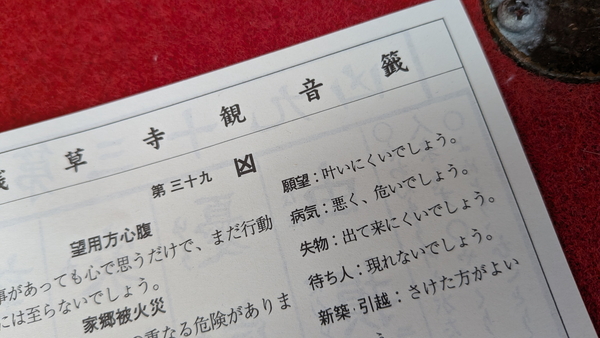 草寺観音籤
第三十九 凶
望用方心腹
事があっても心で思うだけで、まだ行動
には至らないでしょう。
家郷被火災
重なる危険がありま
願望：叶いにくいでしょう。
病気：悪く、危いでしょう。
失物：出て来にくいでしょう。
待ち人：現れないでしょう。
新築・引越：さけた方がよい